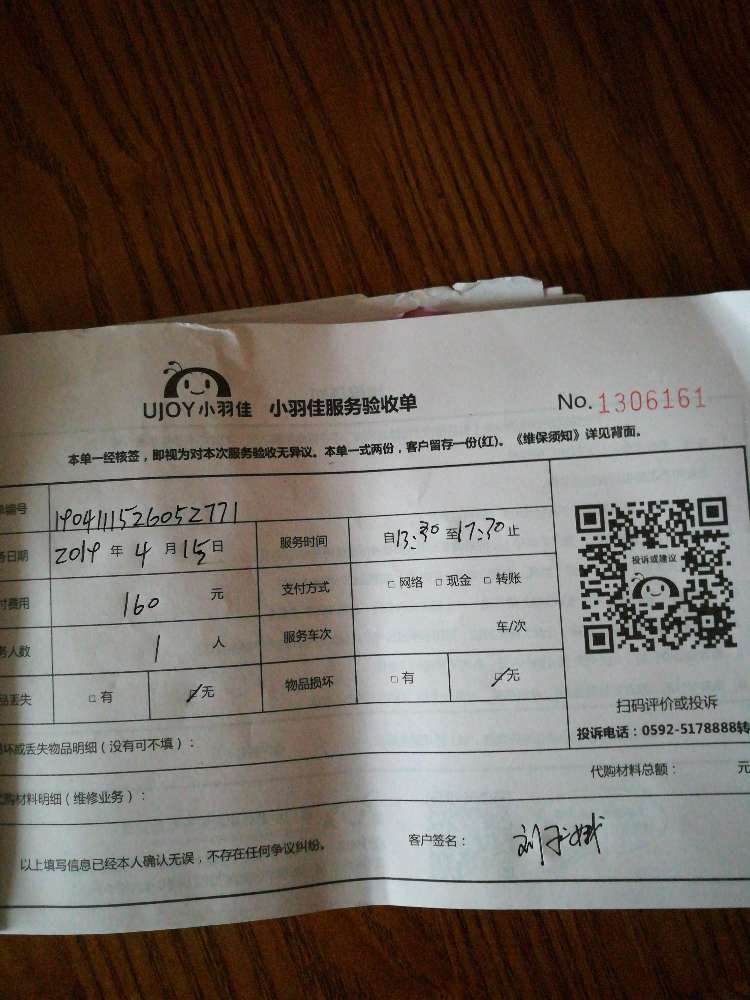 UJOY小羽佳 小羽佳服务验收单 No.1306161
本单一经核签，即视为对本次服务验收无异议。本单一式两份，客户留存一份(红)。《维保须知》详见背面。
单编号 1904111526052771
务日期 2019 年 4 月 15 日 服务时间 自 13:30 至 17:30 止
付费用 160 元 支付方式 □ 网络 □ 现金 □ 转账
务人数 1 人 服务车次 车/次
品丢失 □ 有 ☑ 无 物品损坏 □ 有 ☑ 无
投诉或建议
扫码评价或投诉
投诉电话：0592-5178888转
损坏或丢失物品明细（没有可不填）：
代购材料明细（维修业务）： 代购材料总额： 元
以上填写信息已经本人确认无误，不存在任何争议纠纷。 客户签名： 刘